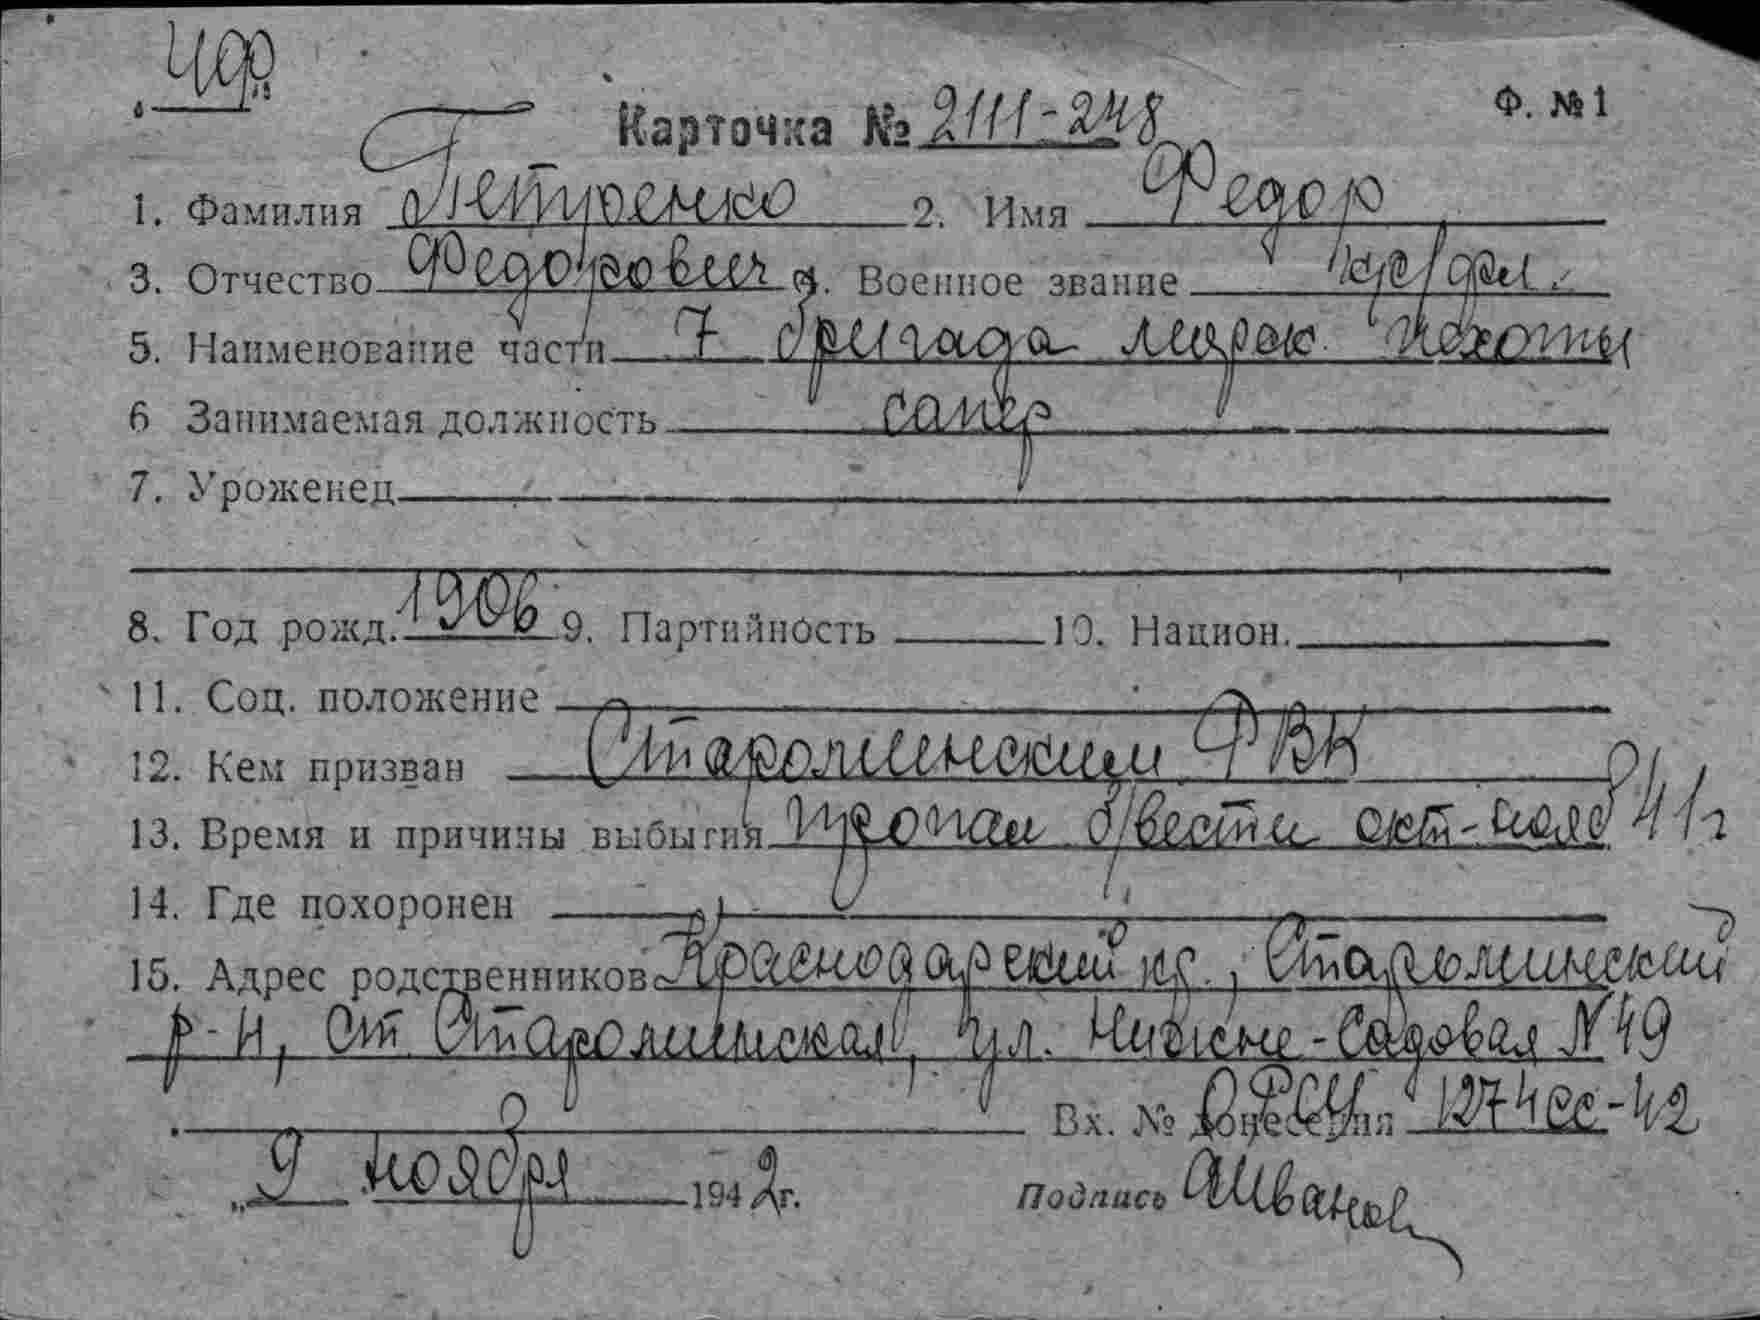 ЧФ
Карточка № 2111-248 Ф. №1
1. Фамилия Петренко 2. Имя Федор
3. Отчество Федорович 4. Военное звание кр/фл.
5. Наименование части 7 бригада морск. пехоты
6 Занимаемая должность сапер
7. Уроженец
8. Год рожд. 1906 9. Партийность 10. Национ.
11. Соц. положение
12. Кем призван Староминским РВК
13. Время и причины выбытия пропал б/вести окт-нояб 41г
14. Где похоронен
15. Адрес родственников Краснодарский кр., Староминский
р-н, ст. Староминская, ул. Нижне-Садовая N 49
Вх. № донесения ОРСУ 1274сс-42
„9 ноября 1942г. Подпись АИванов